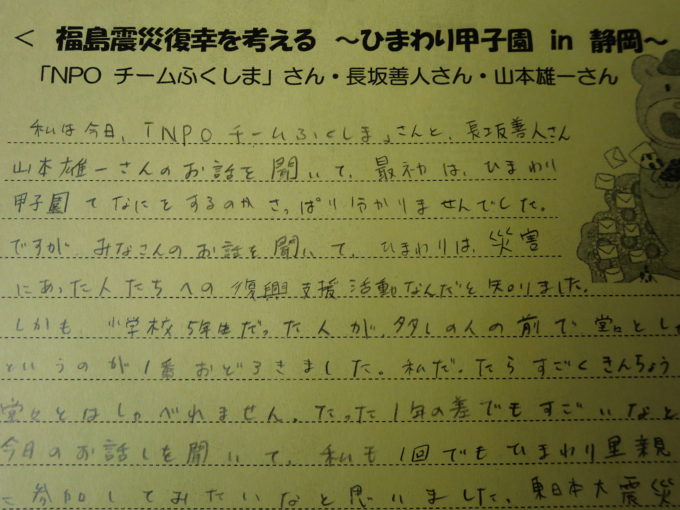 < 福島震災復幸を考える ～ひまわり甲子園 in 静岡～
「NPO チームふくしま」さん・長坂善人さん・山本雄一さん
私は今日、「NPO チームふくしま」さんと、長坂善人さん
山本雄一さんのお話を聞いて、最初は、ひまわり
甲子園てなにをするのかさっぱり分かりませんでした。
ですが、みなさんのお話を聞いて、ひまわりは、災害
にあった人たちへの復興支援活動なんだと知りました。
しかも、小学校5年生だった人が、多くの人の前で堂々としゃ
というのが1番おどろきました。私だったらすごくきんちょう
堂々とはしゃべれません。たった1年の差でもすごいなと
今日のお話しを聞いて、私も1回でもひまわり里親
に参加してみたいなと思いました。東日本大震災